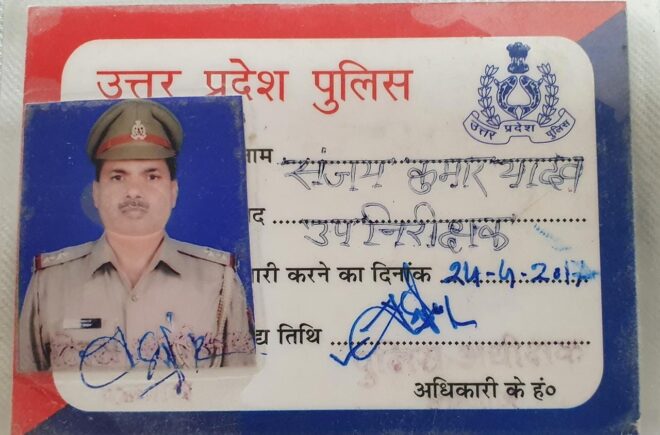 उत्तर प्रदेश पुलिस
उत्तर प्रदेश पुलिस
नाम संजय कुमार यादव
पद उप निरीक्षक
जारी करने का दिनांक 24-4-2017
द्य तिथि
पुलिस अधीक्षक
अधिकारी के ह०